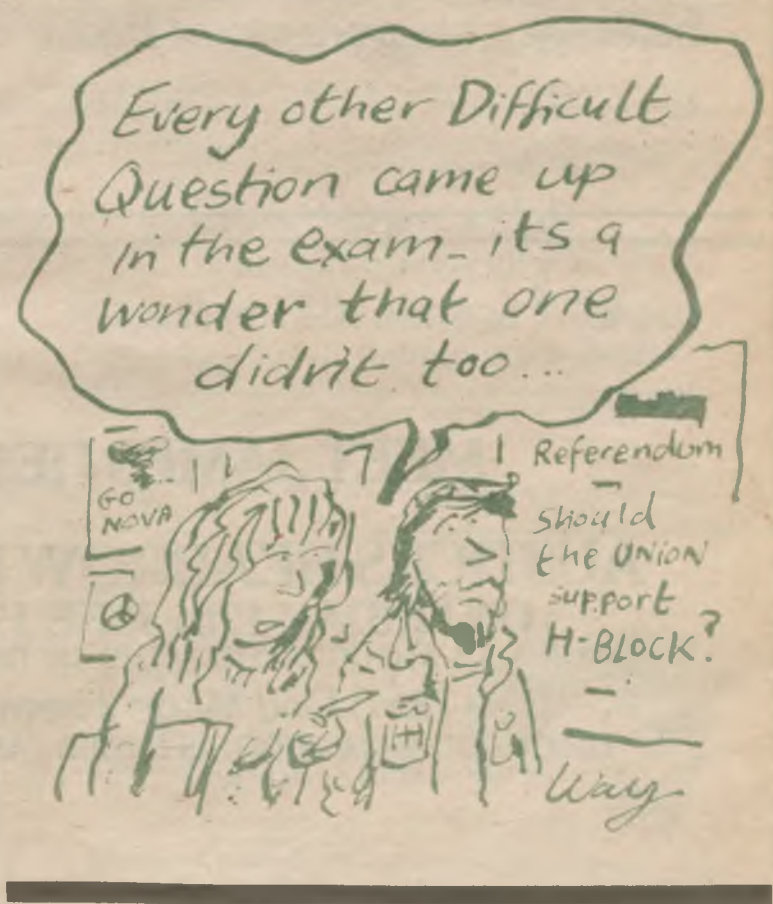 Every other Difficult
Question came up
in the exam_ its a
wonder that one
didn't too...
GO
NOVA
Referendum
Should
the UNION
support
H-BLOCK?
H
Way